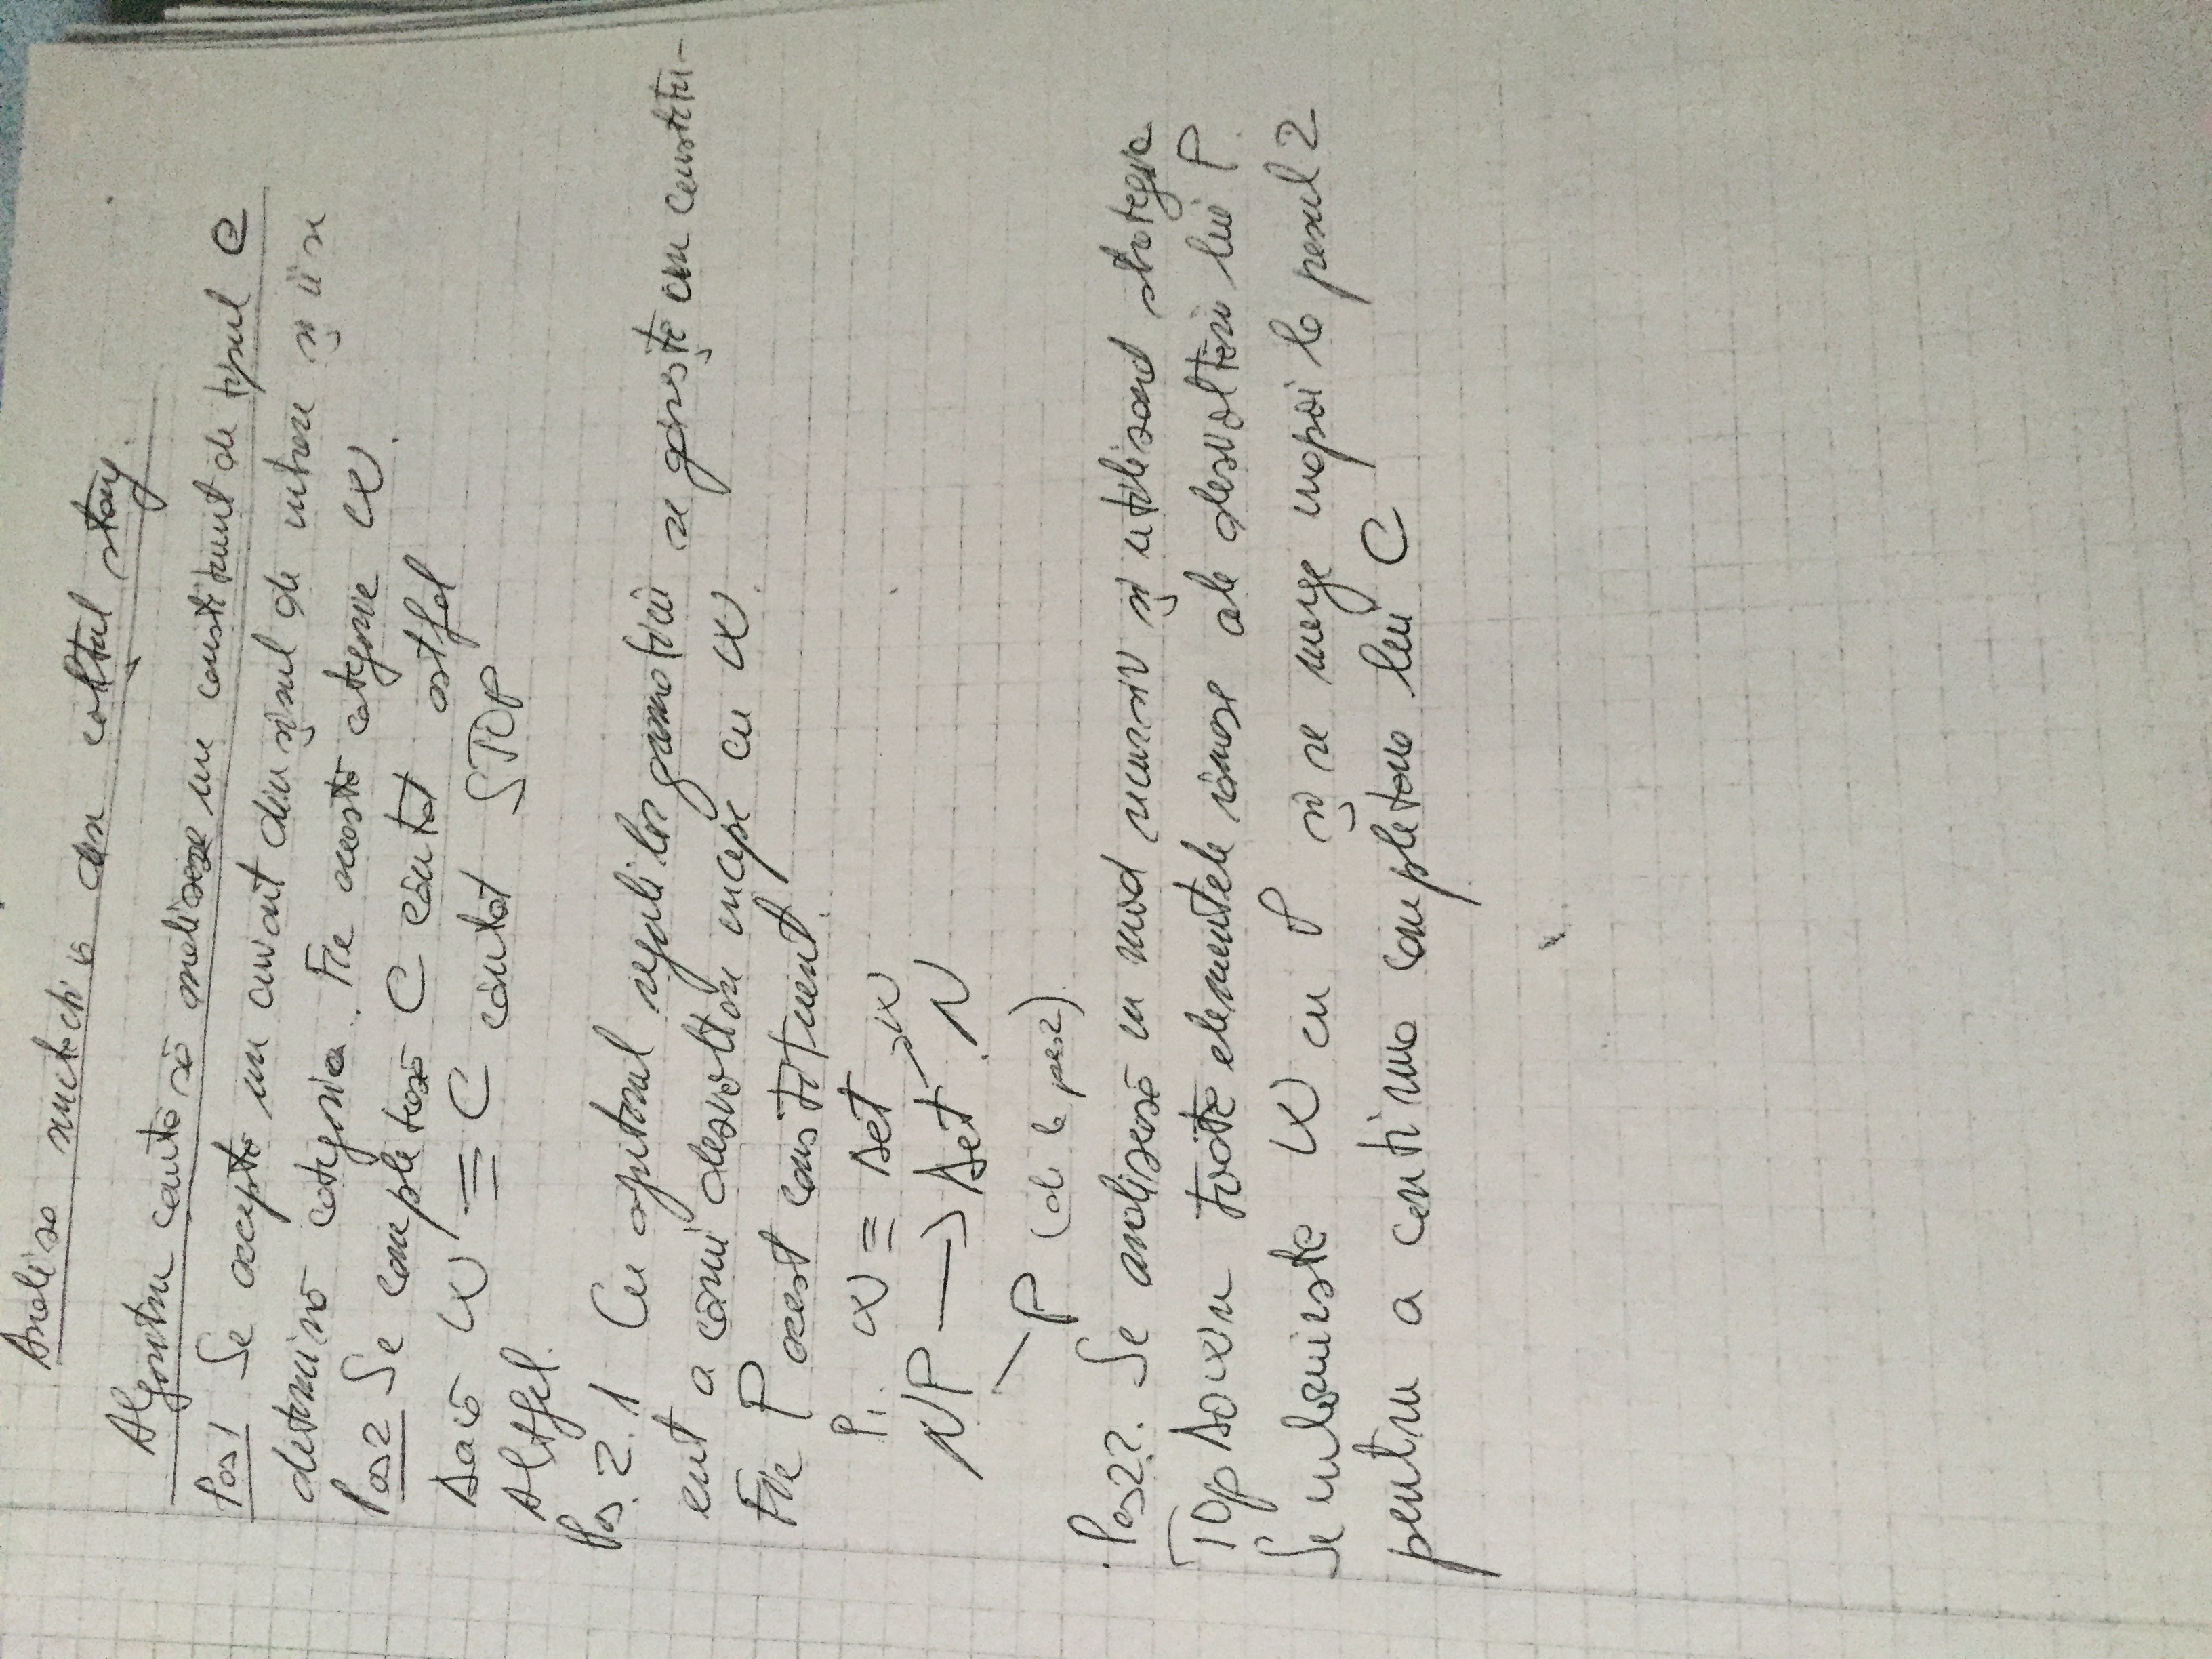 Analiza sintactică din colțul stâng.
Algoritm caută să analizeze un constituent de tipul C
Pas 1 Se acceptă un cuvânt din șirul de intrare și ii se
determină categoria. Fie această categorie W.
Pas 2 Se completează C căutat astfel
Dacă W ≡ C căutat STOP
Altfel.
Pas. 2.1 Cu ajutorul regulilor gramaticii se găsește un constitu-
ent a cărui dezvoltare incepe cu W.
Fie P acest constituent.
P1. W ≡ Det
W
NP → Det N
P (de la pas2).
Pas 2.2. Se analizează in mod recursiv și utilizand strategia
Top Down toate elementele rămase ale dezvoltării lui P.
Se inlocuieste W cu P și se merge inapoi la pasul 2
pentru a continua completarea lui C